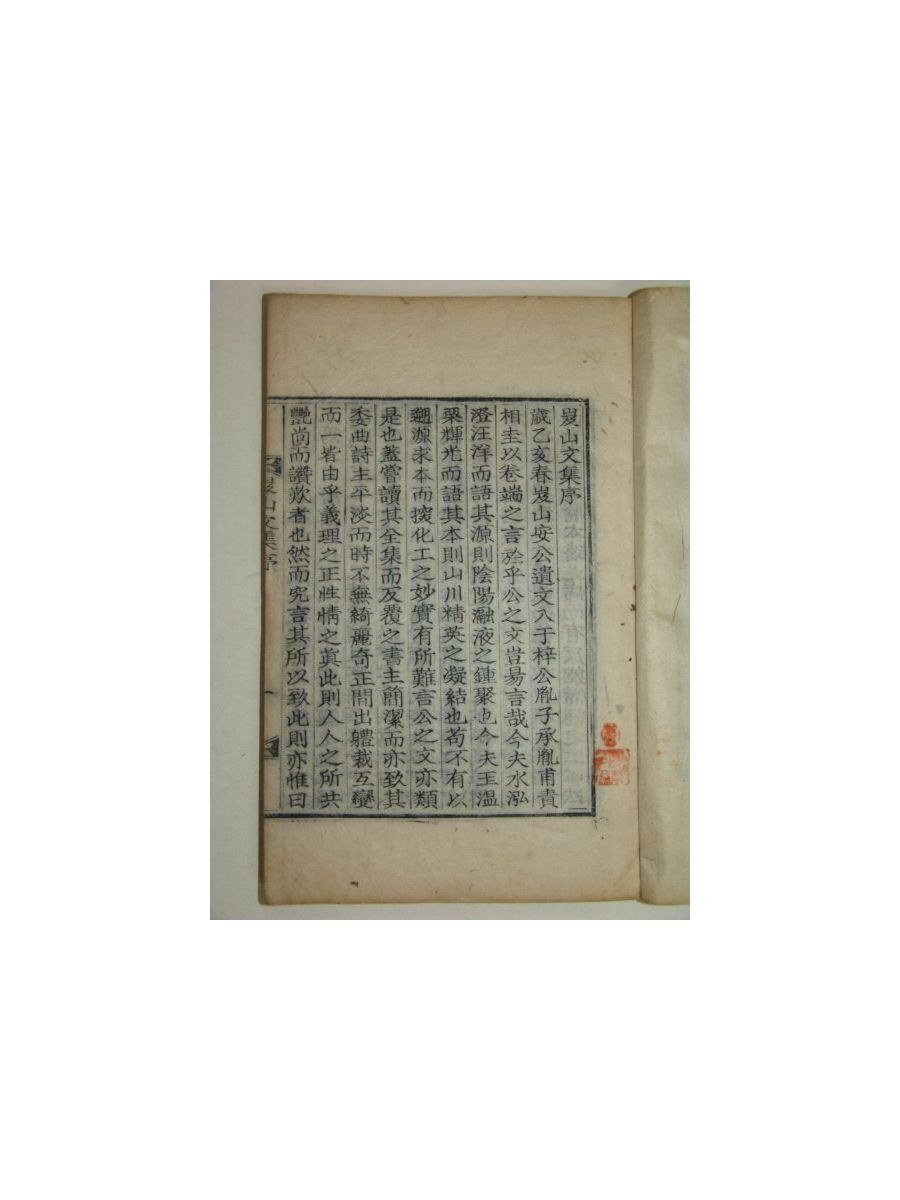 岌山文集序
歲乙亥春岌山安公遺文入于梓公胤子承胤甫責
相圭以卷端之言於乎公之文豈易言哉今夫水泓
澄汪洋而語其源則陰陽瀜液之鍾聚也今夫玉溫
栗輝光而語其本則山川精英之凝結也苟不有以
遡源求本而揆化工之妙實有所難言公之文亦類
是也蓋嘗讀其全集而反覆之書主簡潔而亦致其
委曲詩主平淡而時不無綺麗奇正間出體裁互變
而一皆由乎義理之正性情之眞此則人人之所共
艷尙而讚歎者也然而究言其所以致此則亦惟曰
岌山文集序
一